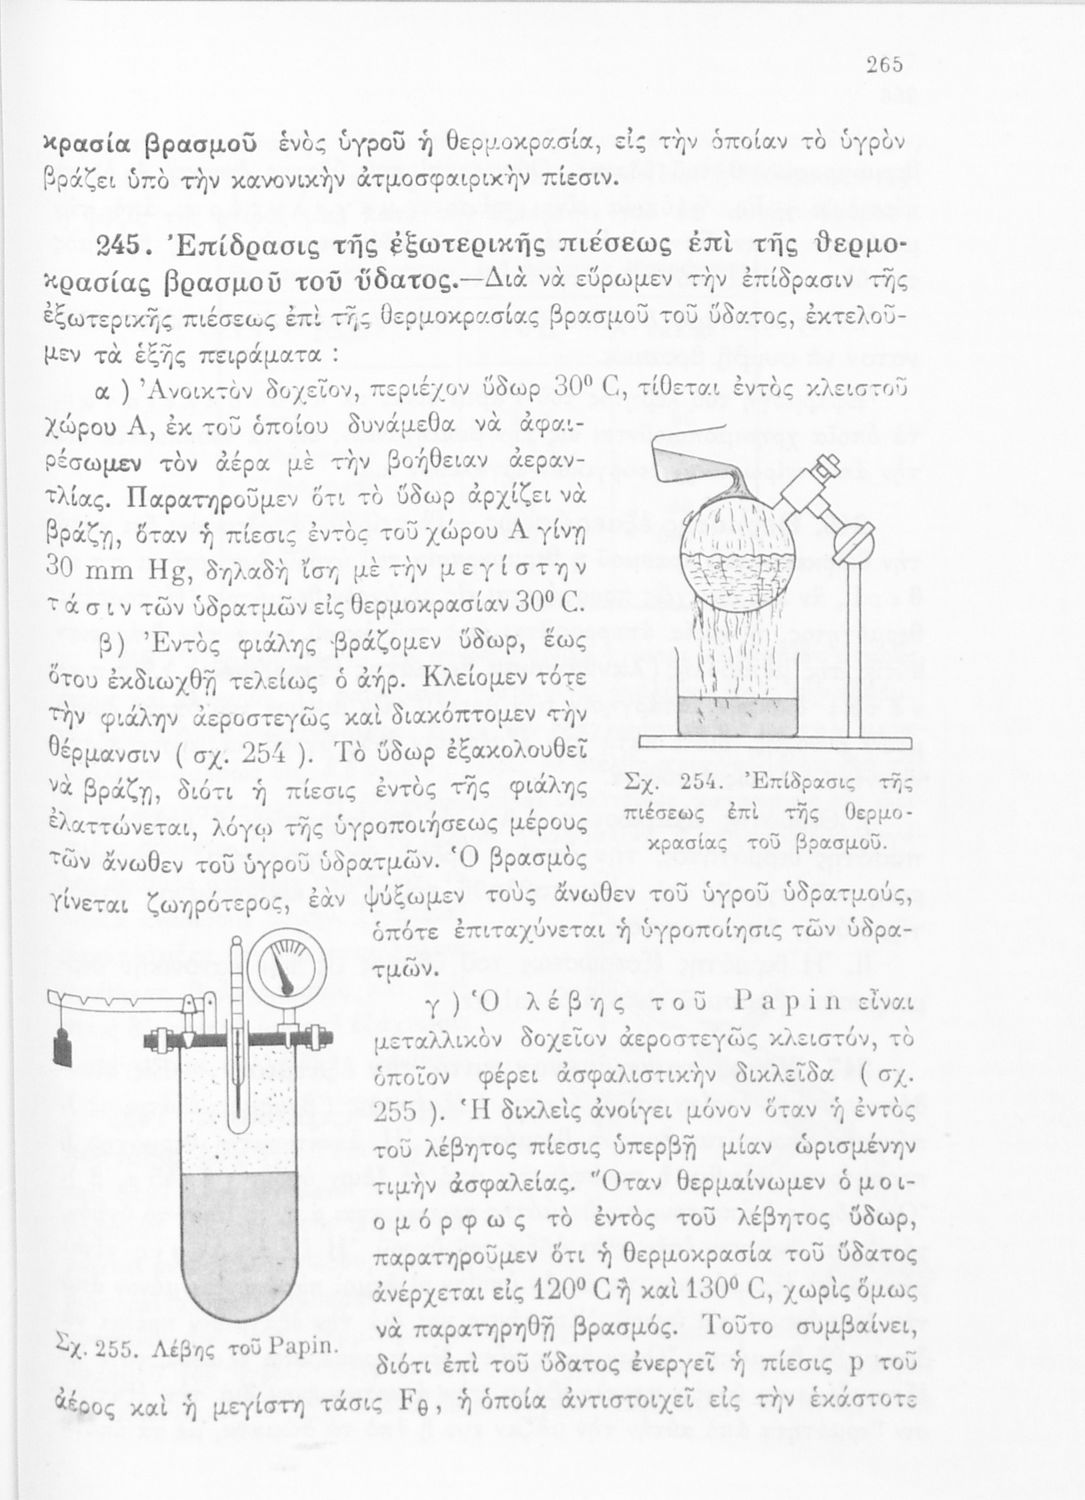 265
κρασία βρασμοῦ ἑνὸς ὑγροῦ ἡ θερμοκρασία, εἰς τὴν ὁποίαν τὸ ὑγρὸν
βράζει ὑπὸ τὴν κανονικὴν ἀτμοσφαιρικὴν πίεσιν.
245. Ἐπίδρασις τῆς ἐξωτερικῆς πιέσεως ἐπὶ τῆς θερμο-
κρασίας βρασμοῦ τοῦ ὕδατος.—Διὰ νὰ εὕρωμεν τὴν ἐπίδρασιν τῆς
ἐξωτερικῆς πιέσεως ἐπὶ τῆς θερμοκρασίας βρασμοῦ τοῦ ὕδατος, ἐκτελοῦ-
μεν τὰ ἑξῆς πειράματα :
α ) Ἀνοικτὸν δοχεῖον, περιέχον ὕδωρ 30⁰ C, τίθεται ἐντὸς κλειστοῦ
χώρου Α, ἐκ τοῦ ὁποίου δυνάμεθα νὰ ἀφαι-
ρέσωμεν τὸν ἀέρα μὲ τὴν βοήθειαν ἀεραν-
τλίας. Παρατηροῦμεν ὅτι τὸ ὕδωρ ἀρχίζει νὰ
βράζῃ, ὅταν ἡ πίεσις ἐντὸς τοῦ χώρου Α γίνῃ
30 mm Hg, δηλαδὴ ἴση μὲ τὴν μ ε γ ί σ τ η ν
τ ά σ ι ν τῶν ὑδρατμῶν εἰς θερμοκρασίαν 30⁰ C.
β) Ἐντὸς φιάλης βράζομεν ὕδωρ, ἕως
ὅτου ἐκδιωχθῇ τελείως ὁ ἀήρ. Κλείομεν τότε
τὴν φιάλην ἀεροστεγῶς καὶ διακόπτομεν τὴν
θέρμανσιν ( σχ. 254 ). Τὸ ὕδωρ ἐξακολουθεῖ
νὰ βράζῃ, διότι ἡ πίεσις ἐντὸς τῆς φιάλης
ἐλαττώνεται, λόγῳ τῆς ὑγροποιήσεως μέρους
τῶν ἄνωθεν τοῦ ὑγροῦ ὑδρατμῶν. Ὁ βρασμὸς
γίνεται ζωηρότερος, ἐὰν ψύξωμεν τοὺς ἄνωθεν τοῦ ὑγροῦ ὑδρατμούς,
Σχ. 254. Ἐπίδρασις τῆς
πιέσεως ἐπὶ τῆς θερμο-
κρασίας τοῦ βρασμοῦ.
ὁπότε ἐπιταχύνεται ἡ ὑγροποίησις τῶν ὑδρα-
τμῶν.
γ ) Ὁ λ έ β η ς τ ο ῦ P a p i n εἶναι
μεταλλικὸν δοχεῖον ἀεροστεγῶς κλειστόν, τὸ
ὁποῖον φέρει ἀσφαλιστικὴν δικλεῖδα ( σχ.
255 ). Ἡ δικλεὶς ἀνοίγει μόνον ὅταν ἡ ἐντὸς
τοῦ λέβητος πίεσις ὑπερβῇ μίαν ὡρισμένην
τιμὴν ἀσφαλείας. Ὅταν θερμαίνωμεν ὁ μ ο ι-
ο μ ό ρ φ ω ς τὸ ἐντὸς τοῦ λέβητος ὕδωρ,
παρατηροῦμεν ὅτι ἡ θερμοκρασία τοῦ ὕδατος
ἀνέρχεται εἰς 120⁰ C ἢ καὶ 130⁰ C, χωρὶς ὅμως
νὰ παρατηρηθῇ βρασμός. Τοῦτο συμβαίνει,
διότι ἐπὶ τοῦ ὕδατος ἐνεργεῖ ἡ πίεσις p τοῦ
Σχ. 255. Λέβης τοῦ Papin.
ἀέρος καὶ ἡ μεγίστη τάσις F<sub>θ</sub>, ἡ ὁποία ἀντιστοιχεῖ εἰς τὴν ἑκάστοτε